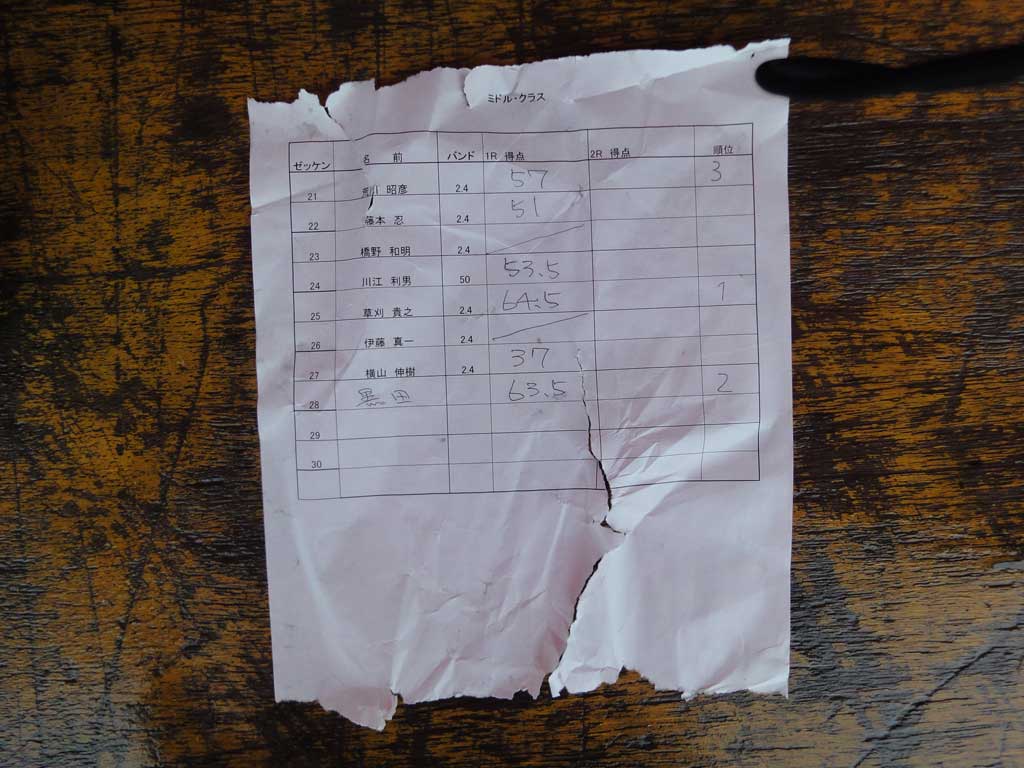 ミドル・クラス
ゼッケン 名 前 バンド 1R 得点 2R 得点 順位
21 川 昭彦 2.4 57 3
22 藤本 忍 2.4 51
23 橋野 和明 2.4
24 川江 利男 50 53.5
25 草刈 貴之 2.4 64.5 1
26 伊藤 真一 2.4
27 横山 伸樹 2.4 37
28 黒田 63.5 2
29
30